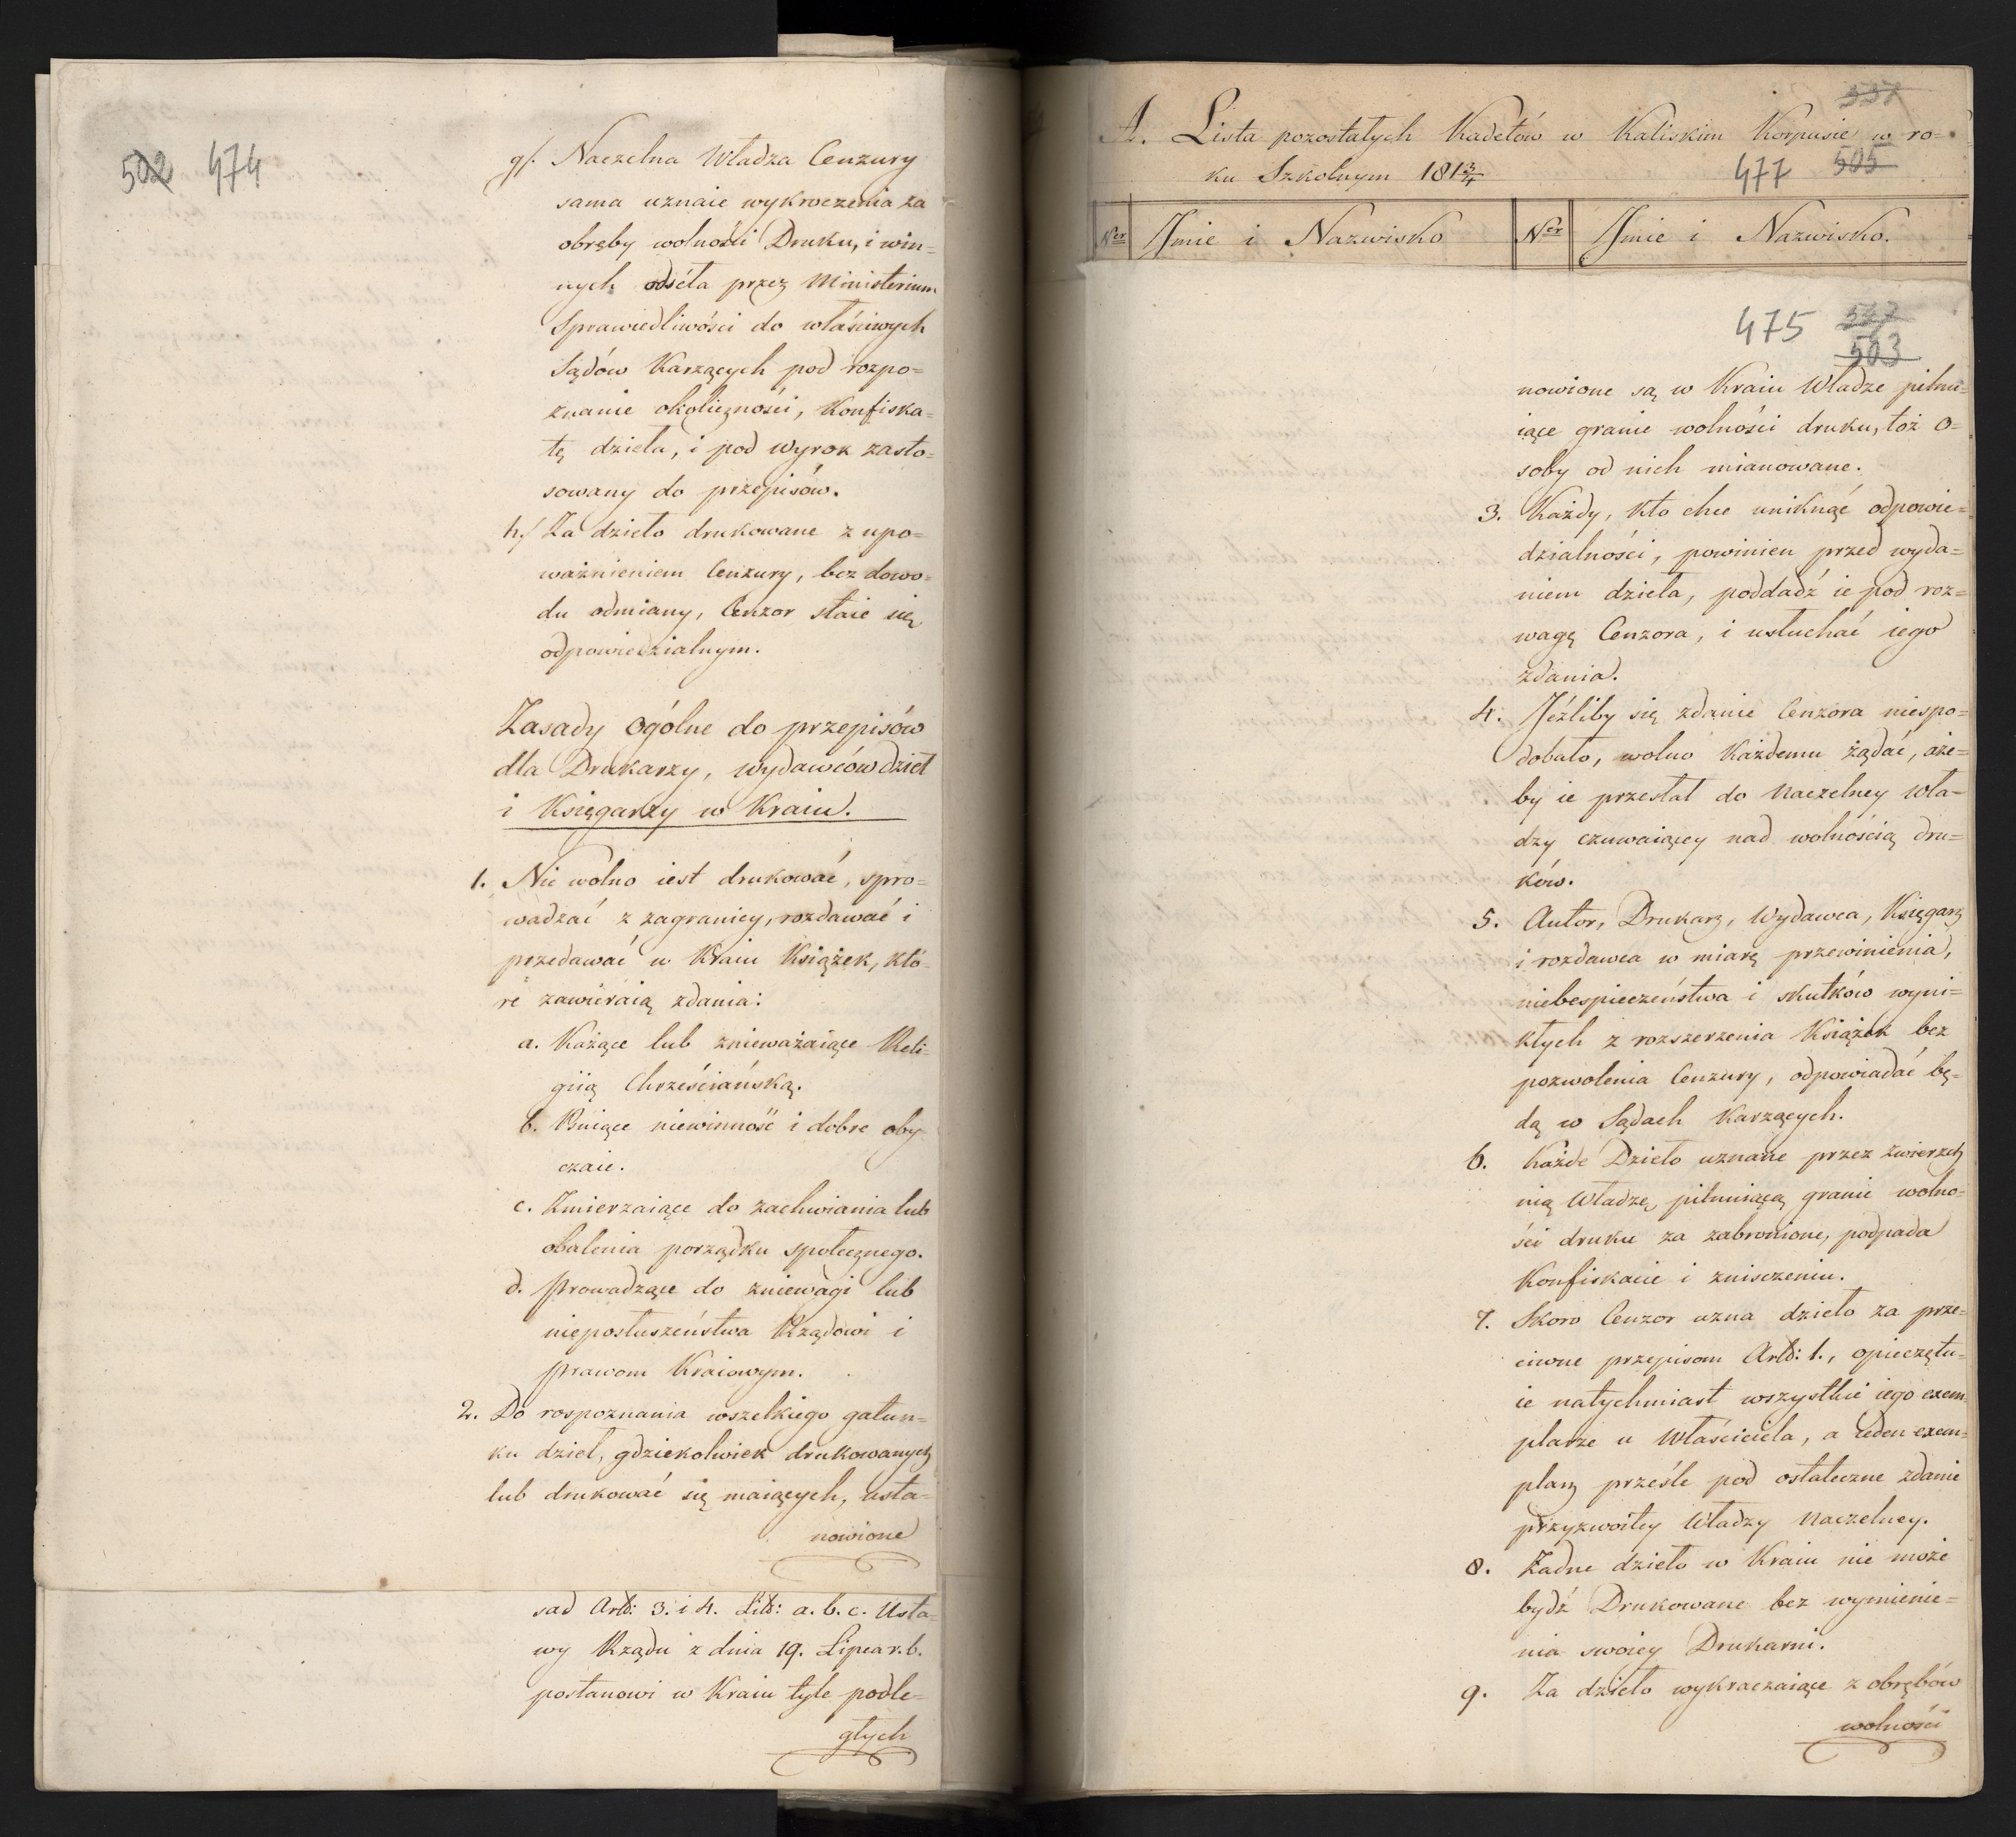 502 474
g/. Naczelna Władza Cenzury
sama uznaie wykroczenia za
obręby wolności Druku, i win=
nych odséła przez Ministerium
Sprawiedliwości do właściwych
Sądów Karzących pod rozpo=
znanie okoliczności, Konfiska=
tę dzieła, i pod wyrok zasto=
sowany do przepisów.
h/. Za dzieło drukowane z upo=
ważnieniem Cenzury, bez dowo=
du odmiany, Cenzor staie się
odpowiedzialnym.
Zasady ogólne do przepisów
dla Drukarzy, wydawców dzieł
i Księgarzy w Kraiu.
1. Nie wolno iest drukować, spro=
wadzać z zagranicy, rozdawać i
przedawać w Kraiu Książek, któ=
re zawieraią zdania:
a. Każące lub znieważaiące Reli=
giią Chrześciańską.
b. Psuiące niewinność i dobre oby
czaie.
c. Zmierzaiące do zachwiania lub
obalenia porządku społecznego.
d. Prowadzące do zniewagi lub
nieposłuszeństwa Rządowi i
prawom Kraiowym.
2. Do rospoznania wszelkiego gatun=
ku dzieł, gdziekolwiek drukowanych
lub drukować się maiących, usta=
nowione
sad Artł: 3. i 4. Litt: a. b. c. Usta=
wy Rządu z dnia 19. Lipca r. b.
postanowi w Kraiu tyle podle=
głych
537
A. Lista pozostałych Kadetów w Kaliskim Korpusie w ro=
ku Szkolnym 181¾
477 505
Ner Imie i Nazwisko Ner Imie i Nazwisko.
475
503
nowione są w Kraiu Władze pilnu=
iące granic wolności druku, toż O=
soby od nich mianowane.
3. Każdy, kto chce uniknąć odpowie=
dzialności, powinien przed wyda=
niem dzieła, poddadź ie pod roz=
wagę Cenzora, i usłuchać iego
zdania.
4. Jeźliby się zdanie Cenzora niespo=
dobało, wolno każdemu żądać, aże=
by ie przesłał do Naczelney Wła=
dzy czuwaiącey nad wolnością dru=
ków.
5. Autor, Drukarz, Wydawca, Księgarz
i rozdawca w miarę przewinienia,
niebespieczeństwa i skutków wyni=
kłych z rozszerzenia Książek bez
pozwolenia Cenzury, odpowiadać bę=
dą w Sądach Karzących.
6. Każde Dzieło uznane przez zwierzch
nią Władzę, pilnuiącą granic wolno=
ści druku za zabronione, podpada
Konfiskacie i znisczeniu.
7. Skoro Cenzor uzna dzieło za prze=
ciwne przepisom Artł: 1., opieczętu=
ie natychmiast wszystkie iego exem=
plarze u Właściciela, a ieden exem=
plarz prześle pod ostateczne zdanie
przyzwoitey Władzy Naczelney.
8. Żadne dzieło w Kraiu nie może
bydź Drukowane bez wymienie=
nia swoiey Drukarni.
9. Za dzieło wykraczaiące z obrębów
wolności